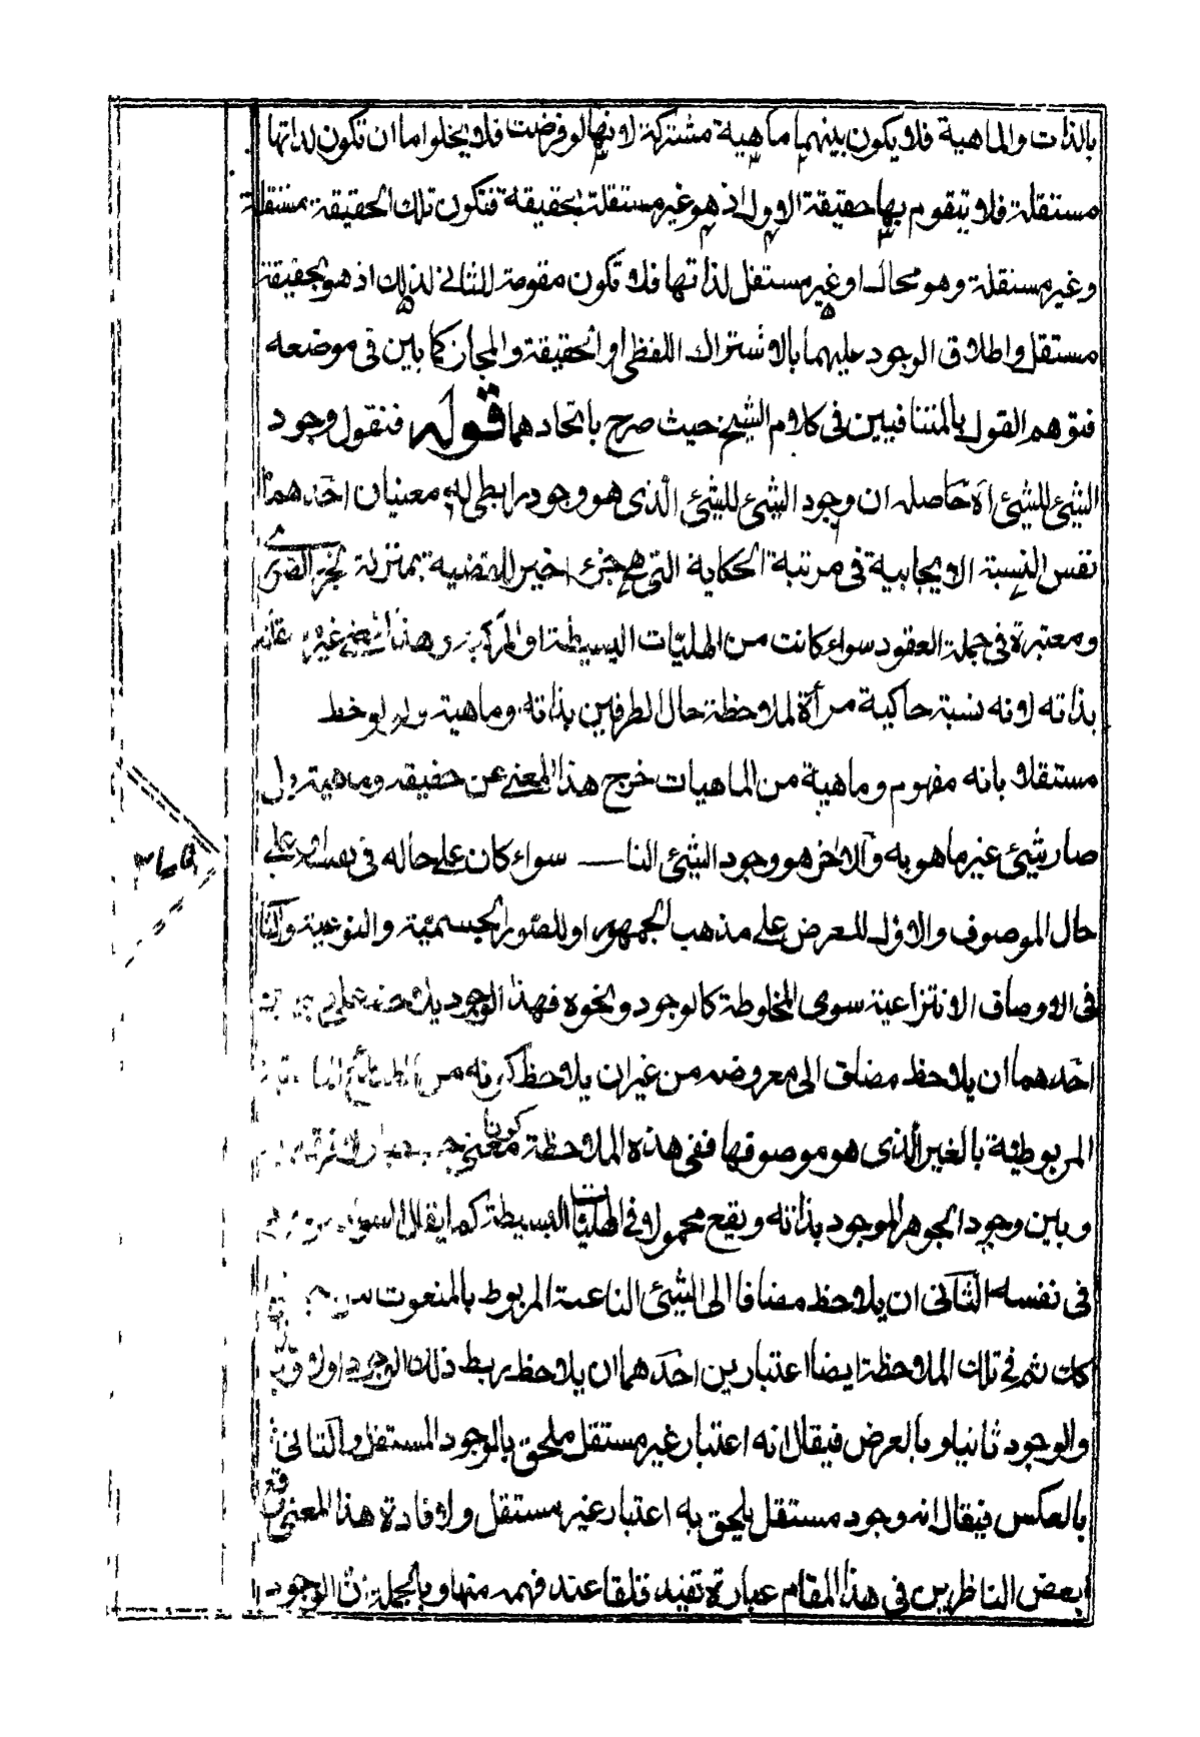 بالذات والماهية فلا يكون بينهما ماهية مشتركة لانها لو فرضت فلا يخلو اما ان تكون لذاتها
مستقلة فلا يتقوم بها حقيقة الاول اذ هو غير مستقلة بحقيقة فتكون تلك الحقيقة مستقلة
وغير مستقلة وهو محال او غير مستقل لذاتها فلا تكون مقومة للثانى لذلك اذ هو بحقيقة
مستقل واطلاق الوجود عليهما بالاشتراك اللفظى او الحقيقة والمجاز كما بين فى موضعه
فتوهم القول بالمتنافيين فى كلام الشيخ حيث صرح باتحادهما قوله فنقول وجود
الشيئ للشيئ اه حاصله ان وجود الشيئ للشيئ الذى هو وجود رابطى له معنيان احدهما
نفس النسبة الايجابية فى مرتبة الحكاية التى هى جزء اخير للقضية بمنزلة الجزء الصورى
ومعتبرة فى جملة العقود سواء كانت من الهليات البسيطة او المركبة وهذا المعنى غير
بذاته لانه نسبة حاكية مرأة لملاحظة حال الطرفين بذاته وماهية ولو لوحظ
مستقلا بانه مفهوم وماهية من الماهيات خرج هذا المعنى عن حقيقته وماهيته
صار شيئ غير ما هو به والاخر هو وجود الشيئ النا سواء كان على حاله فى نفسه او على
حال الموصوف والاول للعرض على مذهب الجمهور او للصور الجسمية والنوعية والثانى
فى الاوصاف الانتزاعية سوى المخلوطة كالوجود ونحوه فهذا الوجود يلاحظ على
احدهما ان يلاحظ مضاف الى معروضه من غير ان يلاحظ كونه من
المربوطية بالغير الذى هو موصوفها ففى هذه الملاحظة كونا معنى
وبين وجود الجوهر الموجود بذاته ويقع محمولا فى الهليات البسيطة كما يقال السواد موجود
فى نفسه الثانى ان يلاحظ مضافا الى الشيئ الناعت المربوط بالمنعوت
كات ثم فى تلك الملاحظة ايضا اعتبارين احدهما ان يلاحظ ربط ذلك الوجود اولا
والوجود ثانيا وبالعرض فيقال انه اعتبار غير مستقل ملحق بالوجود المستقل والثانى
بالعكس فيقال انه وجود مستقل يلحق به اعتبار غير مستقل ولافادة هذا المعنى وقع
لبعض الناظرين فى هذا المقام عبارة تفيد قلقا عند فهمه منها وبالجملة ان الوجود